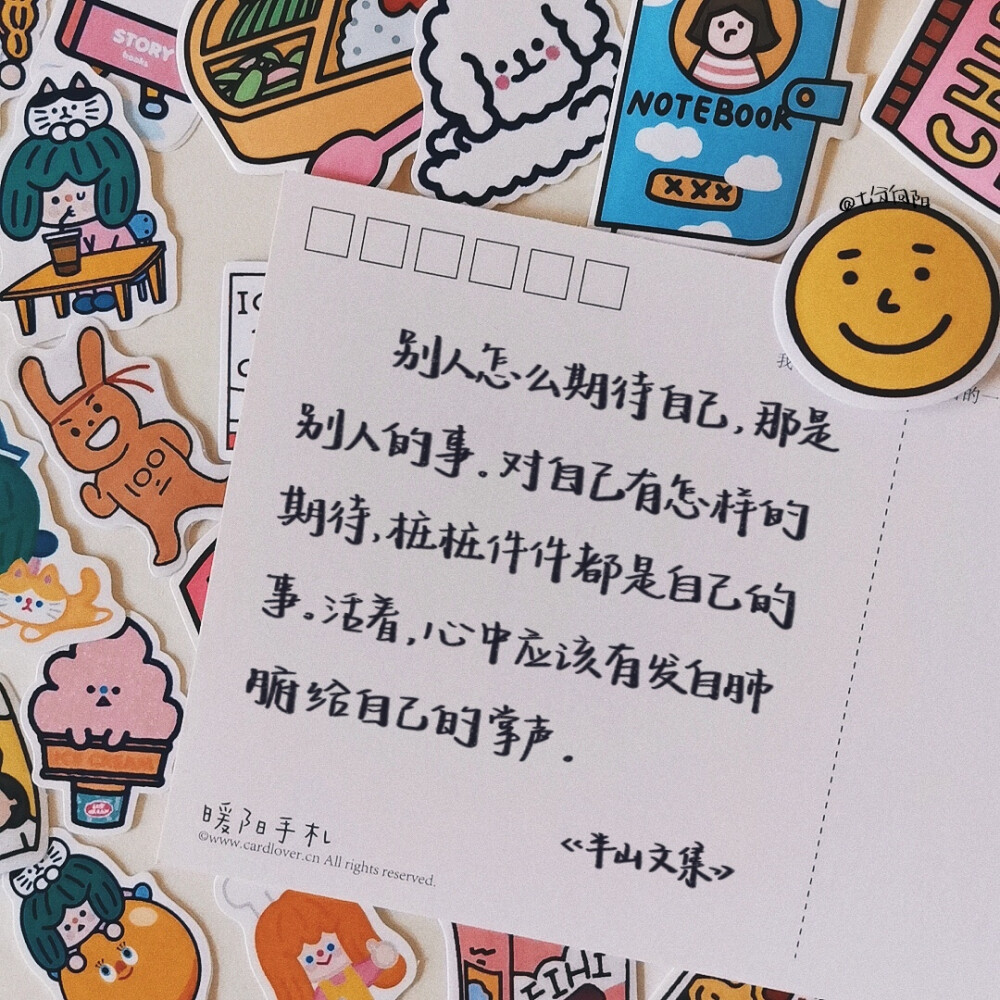 STORY
books
NOTEBOOK
XXX
@七分向阳
别人怎么期待自己，那是
别人的事。对自己有怎样的
期待，桩桩件件都是自己的
事。活着，心中应该有发自肺
腑给自己的掌声.
《半山文集》
暖阳手札
©www.cardlover.cn All rights reserved.
ICE CREAM